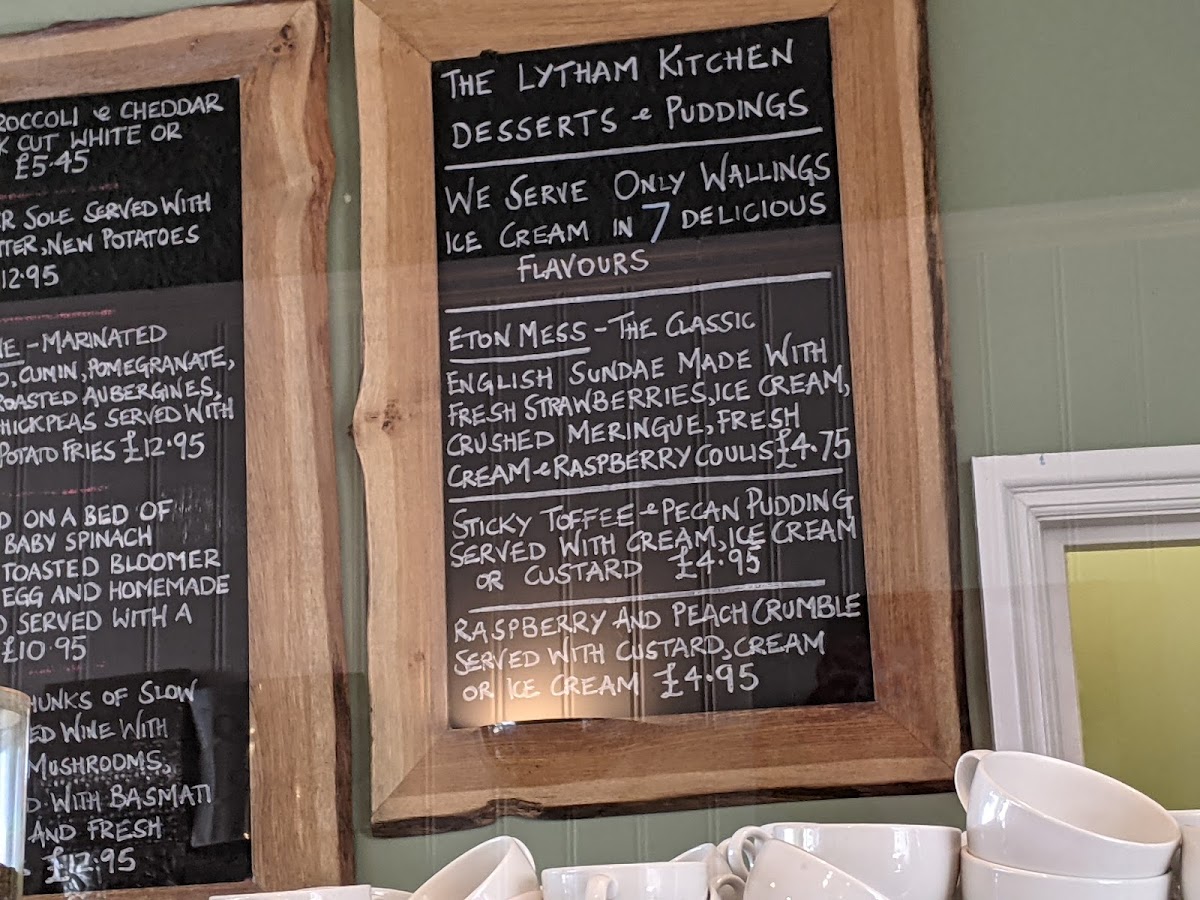 ROCCOLI & CHEDDAR
K CUT WHITE OR
£5.45
ER SOLE SERVED WITH
TTER, NEW POTATOES
12.95
NE - MARINATED
O, CUMIN, POMEGRANATE,
ROASTED AUBERGINES,
HICKPEAS SERVED WITH
POTATO FRIES £12.95
D ON A BED OF
BABY SPINACH
TOASTED BLOOMER
EGG AND HOMEMADE
D SERVED WITH A
£10.95
HUNKS OF SLOW
ED WINE WITH
MUSHROOMS,
D WITH BASMATI
AND FRESH
£12.95
THE LYTHAM KITCHEN
DESSERTS & PUDDINGS
WE SERVE ONLY WALLINGS
ICE CREAM IN 7 DELICIOUS
FLAVOURS
ETON MESS - THE CLASSIC
ENGLISH SUNDAE MADE WITH
FRESH STRAWBERRIES, ICE CREAM,
CRUSHED MERINGUE, FRESH
CREAM & RASPBERRY COULIS £4.75
STICKY TOFFEE & PECAN PUDDING
SERVED WITH CREAM, ICE CREAM
OR CUSTARD £4.95
RASPBERRY AND PEACH CRUMBLE
SERVED WITH CUSTARD, CREAM
OR ICE CREAM £4.95